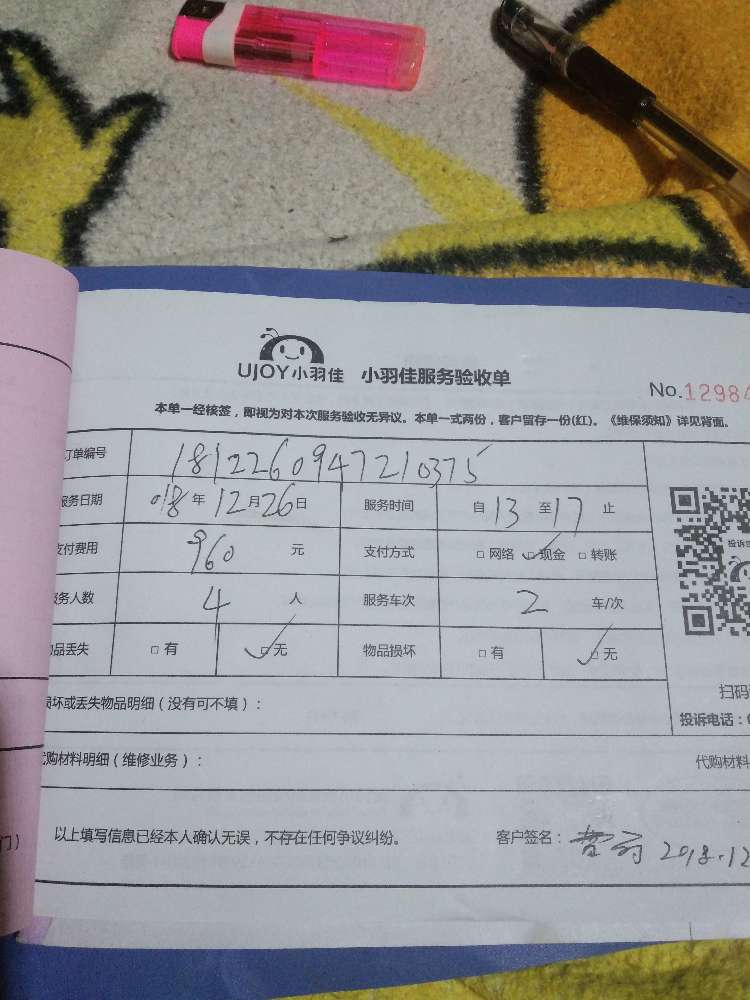 UJOY小羽佳 小羽佳服务验收单
No.12984
本单一经核签，即视为对本次服务验收无异议。本单一式两份，客户留存一份(红)。《维保须知》详见背面。
订单编号 1812260947210375
服务日期 018年12月26日 服务时间 自13至17止
支付费用 960元 支付方式 □网络 ☑现金 □转账
服务人数 4人 服务车次 2车/次
物品丢失 □有 ☑无 物品损坏 □有 ☑无
投诉
扫码
损坏或丢失物品明细（没有可不填）：
投诉电话：
代购材料明细（维修业务）： 代购材料
以上填写信息已经本人确认无误，不存在任何争议纠纷。 客户签名： 2018.12